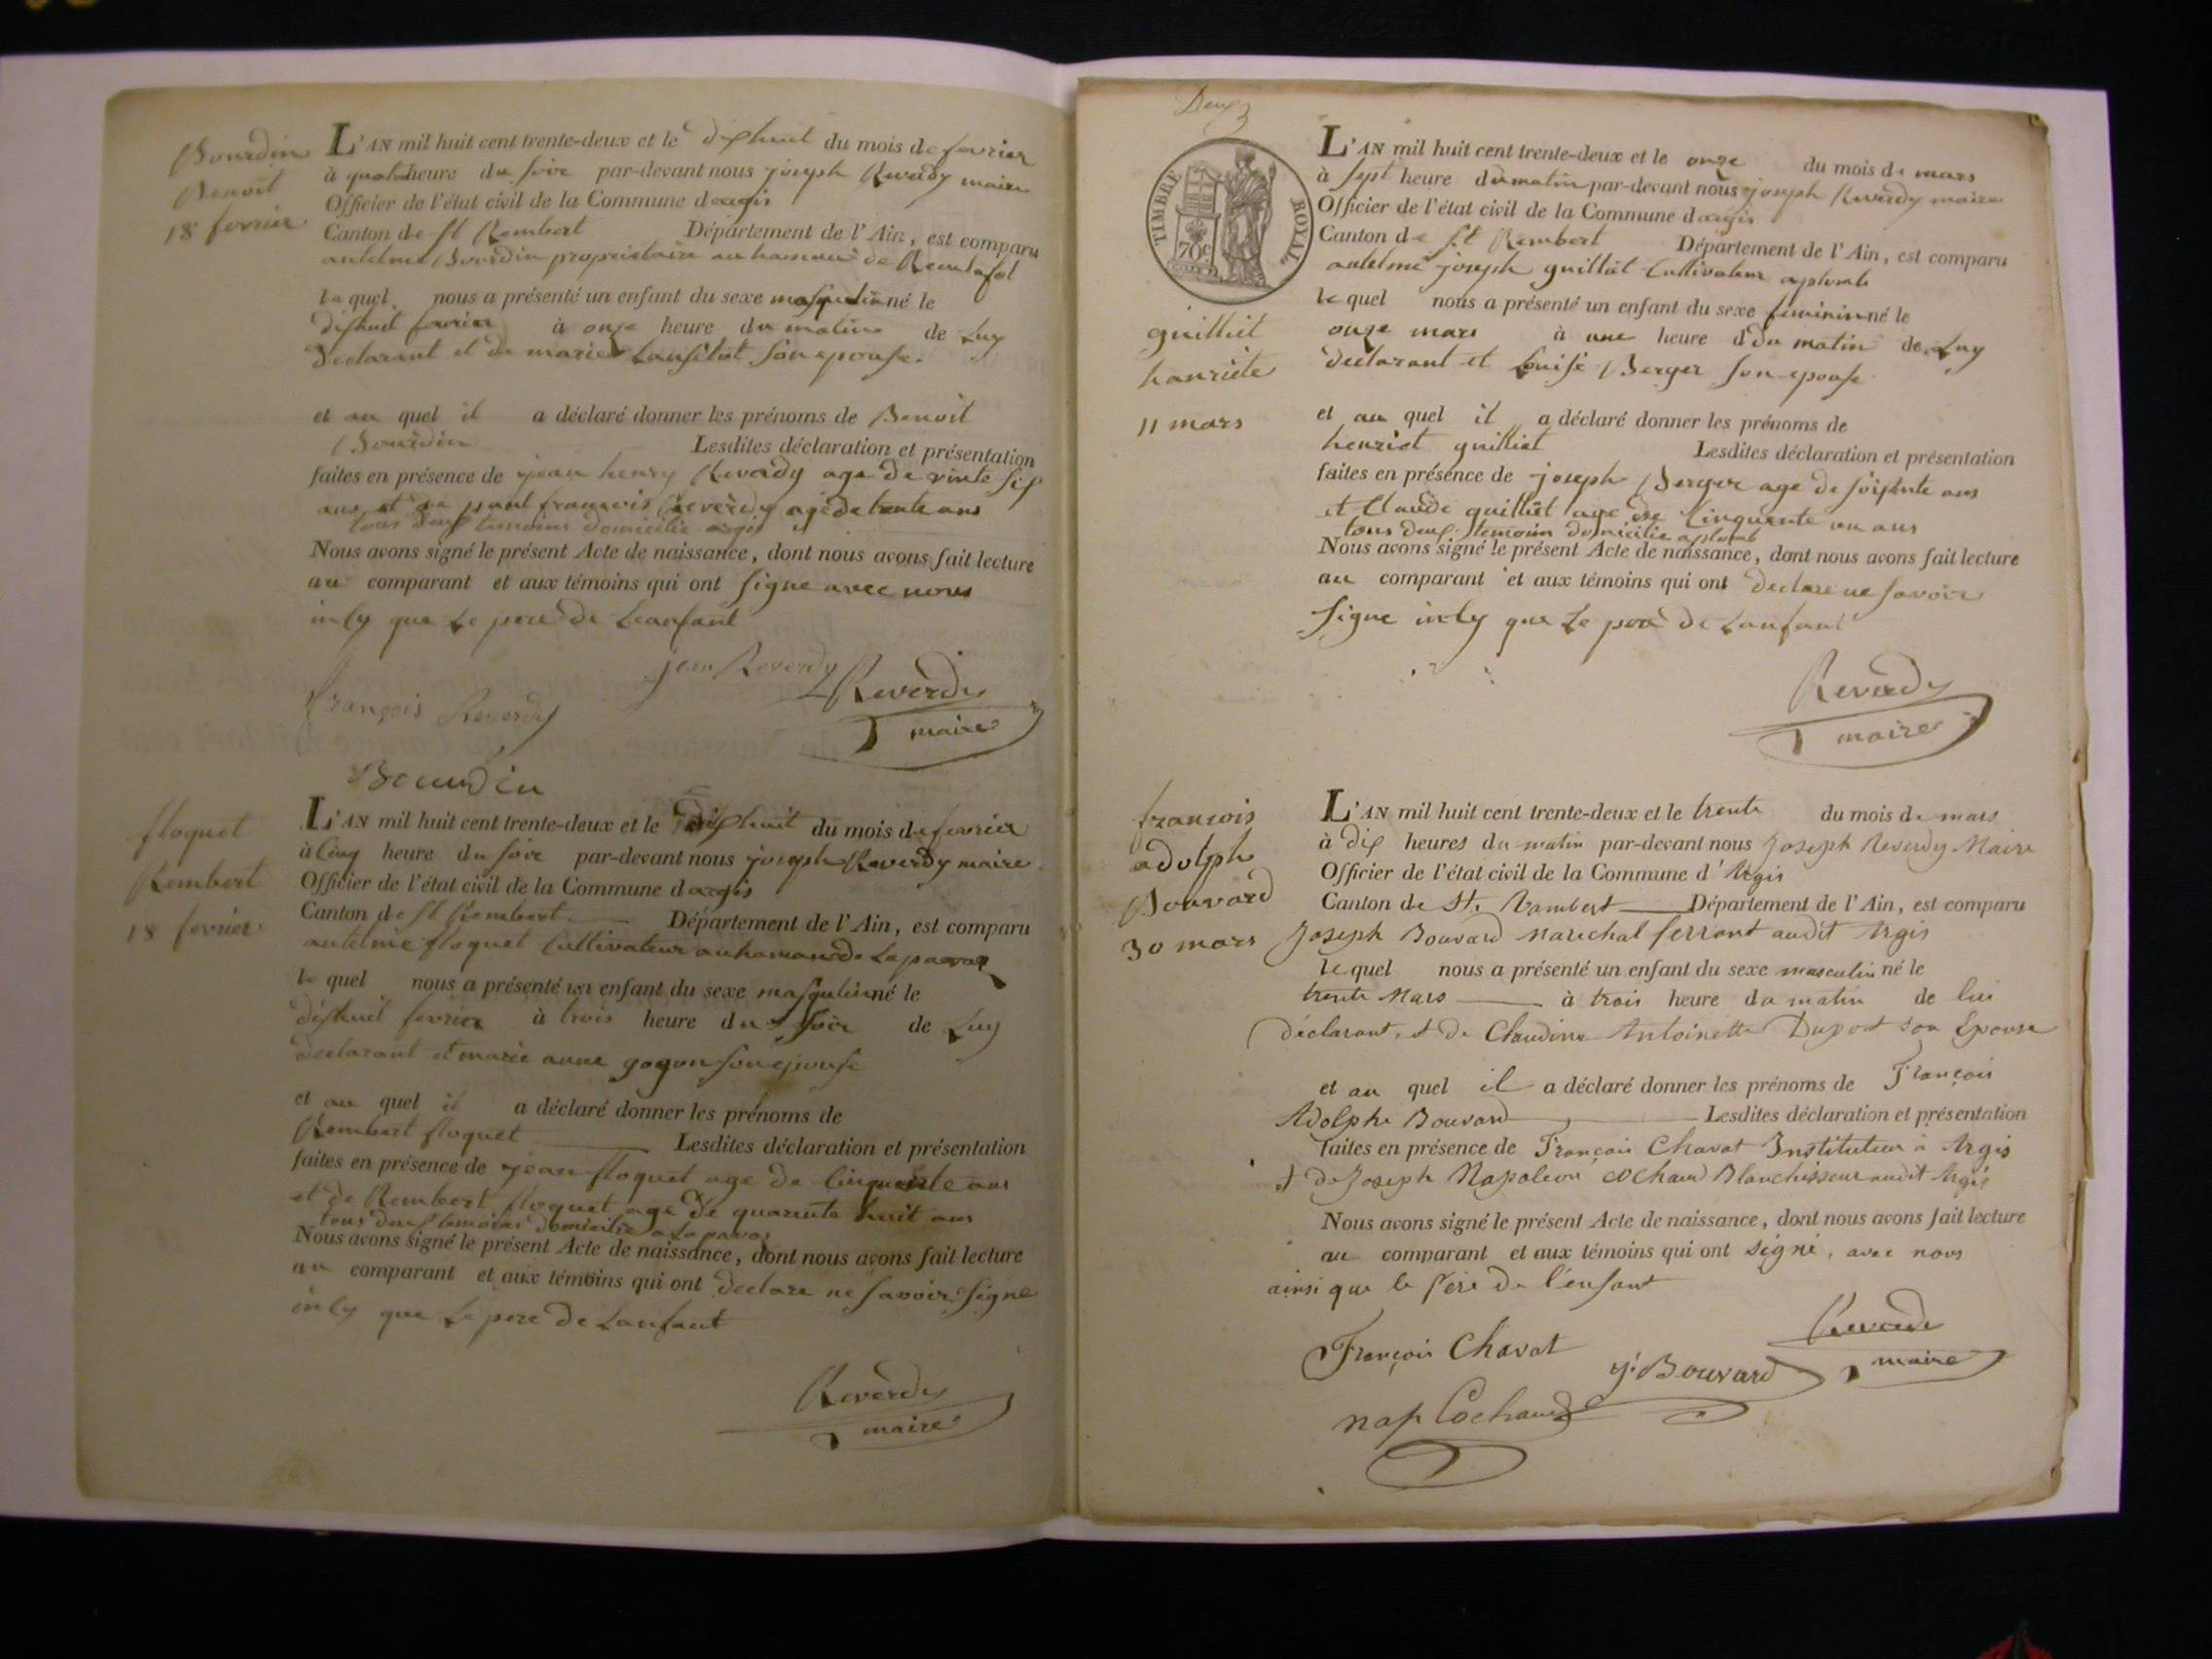 Bourdin
Benoit
18 fevrier
L'AN mil huit cent trente-deux et le dixhuit du mois de fevrier
à quatre heure du soire par-devant nous joseph Reverdy maire
Officier de l'état civil de la Commune dargis
Canton de St Rembert Département de l'Ain, est comparu
antelme Bourdin propriétaire au hameau de Reculafol
le quel nous a présenté un enfant du sexe masqulin né le
dixhuit fevrier à onze heure du matin de Luy
declarant et de marie son epouse.
et au quel il a déclaré donner les prénoms de Benoit
Bourdin Lesdites déclaration et présentation
faites en présence de jean henry Reverdy age de vinte six
ans et de paul francois Reverdy age de trente ans
tous deux temoins domicilie argis
Nous avons signé le présent Acte de naissance, dont nous avons fait lecture
au comparant et aux témoins qui ont signe avec nous
incy que Le pere de Leanfant
jean Reverdy
Reverdy
maire
françois Reverdy
Bourdin
floquet
Rembert
18 fevrier
L'AN mil huit cent trente-deux et le dixhuit du mois de fevrier
à Cinq heure du soire par-devant nous joseph Reverdy maire
Officier de l'état civil de la Commune dargis
Canton de St Rembert Département de l'Ain, est comparu
antelme floquet Cultivateur au hamau de
le quel nous a présenté un enfant du sexe masqulin né le
dixhuit fevrier à trois heure du soir de Luy
declarant et marie anne gogon son epouse
et au quel il a déclaré donner les prénoms de
Rembert floquet Lesdites déclaration et présentation
faites en présence de jean floquet age de Cinquente ans
et de Rembert floquet age de quarente huit ans
tous deux temoins domicilie a
Nous avons signé le présent Acte de naissance, dont nous avons fait lecture
au comparant et aux témoins qui ont declare ne savoir signe
incy que Le pere de Lanfant
Reverdy
maire
Deux
TIMBRE ROYAL
70c
guilliet
hanriete
11 mars
L'AN mil huit cent trente-deux et le onze du mois de mars
à sept heure du matin par-devant nous joseph Reverdy maire
Officier de l'état civil de la Commune dargis
Canton de St Rembert Département de l'Ain, est comparu
antelme joseph guilliet Cultivateur a plomb
le quel nous a présenté un enfant du sexe feminin né le
onze mars à une heure d du matin de Luy
declarant et Louise Berger son epouse
et au quel il a déclaré donner les prénoms de
henriet guilliet Lesdites déclaration et présentation
faites en présence de joseph Berger age de soixente ans
et Claude guilliet age de Cinquente un ans
tous deux temoin domicilie a plomb
Nous avons signé le présent Acte de naissance, dont nous avons fait lecture
au comparant et aux témoins qui ont declare ne savoir
signe incy que Le pere de Lanfant
Reverdy
maire
francois
adolph
Bouvard
30 mars
L'AN mil huit cent trente-deux et le trente du mois de mars
à dix heures du matin par-devant nous Joseph Reverdy Maire
Officier de l'état civil de la Commune d'Argis
Canton de St. Rambert Département de l'Ain, est comparu
Joseph Bouvard Marechal ferrant audit Argis
le quel nous a présenté un enfant du sexe masculin né le
trente Mars à trois heure du matin de lui
déclarant, & de Claudine Antoinette Dupont son Epouse
et au quel il a déclaré donner les prénoms de François
Adolphe Bouvard Lesdites déclaration et présentation
faites en présence de François Chavat Instituteur à Argis
& de Joseph Napoleon Cochaud Blanchisseur audit Argis
Nous avons signé le présent Acte de naissance, dont nous avons fait lecture
au comparant et aux témoins qui ont signé, avec nous
ainsi que le Père de l'enfant
François Chavat
Reverdy
maire
j. Bouvard
nap Cochaud